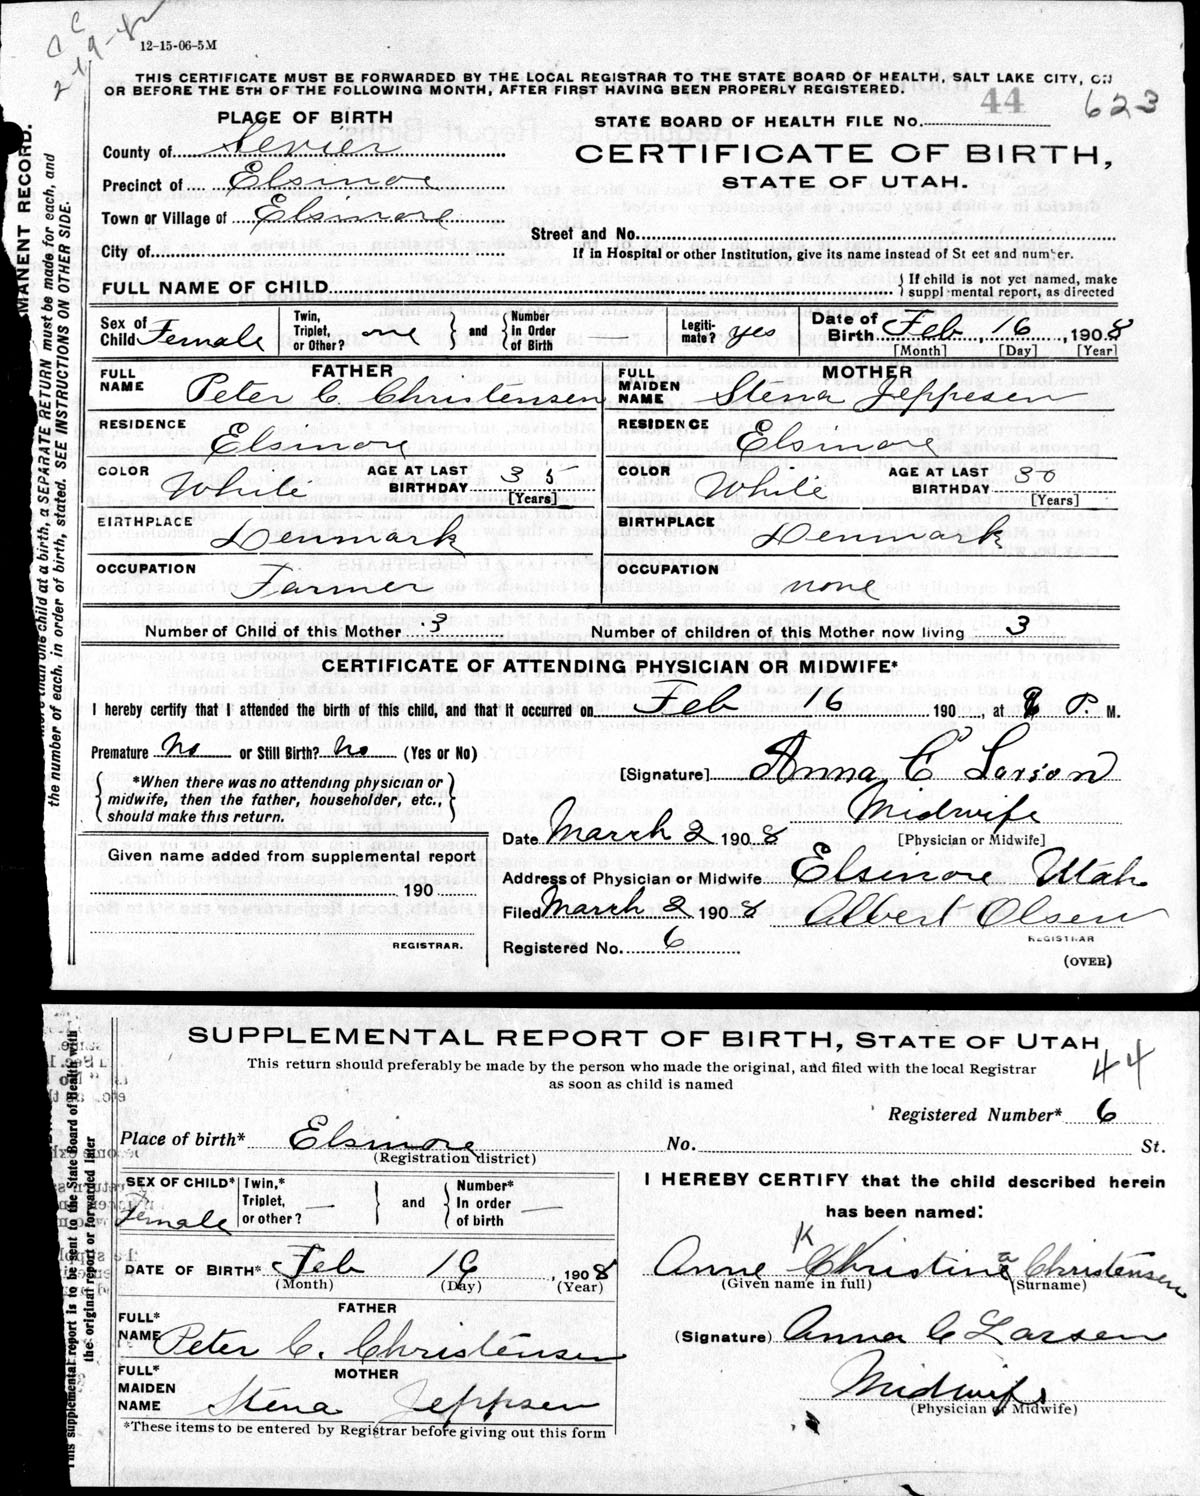 C C
2-19-42
12-15-06-5M
THIS CERTIFICATE MUST BE FORWARDED BY THE LOCAL REGISTRAR TO THE STATE BOARD OF HEALTH, SALT LAKE CITY, ON
OR BEFORE THE 5TH OF THE FOLLOWING MONTH, AFTER FIRST HAVING BEEN PROPERLY REGISTERED.
PLACE OF BIRTH
STATE BOARD OF HEALTH FILE No. 44 623
County of Sevier
CERTIFICATE OF BIRTH,
Precinct of Elsinore
STATE OF UTAH.
Town or Village of Elsinore
Street and No.
City of
If in Hospital or other Institution, give its name instead of St eet and number.
FULL NAME OF CHILD
If child is not yet named, make
suppl mental report, as directed
Sex of Child Female Twin, Triplet, or Other? one and Number in Order of Birth — Legiti-mate? yes Date of Birth Feb, 16, 1908
[Month] [Day] [Year]
FATHER
FULL NAME Peter C. Christensen
RESIDENCE Elsinore
COLOR White AGE AT LAST BIRTHDAY 35
[Years]
BIRTHPLACE Denmark
OCCUPATION Farmer
MOTHER
FULL MAIDEN NAME Stena Jeppesen
RESIDENCE Elsinore
COLOR White AGE AT LAST BIRTHDAY 30
[Years]
BIRTHPLACE Denmark
OCCUPATION none
Number of Child of this Mother 3 Number of children of this Mother now living 3
CERTIFICATE OF ATTENDING PHYSICIAN OR MIDWIFE*
I hereby certify that I attended the birth of this child, and that it occurred on Feb 16 190 , at P. M.
Premature No or Still Birth? No (Yes or No)
[Signature] Anna C Larson
*When there was no attending physician or
midwife, then the father, householder, etc.,
should make this return.
Midwife
[Physician or Midwife]
Date March 2 1908
Given name added from supplemental report
190
REGISTRAR.
Address of Physician or Midwife Elsinore Utah
Filed March 2 1908 Albert Olsen
REGISTRAR
Registered No. 6
(OVER)
MANENT RECORD.
more than one child at a birth, a SEPARATE RETURN must be made for each, and
the number of each, in order of birth, stated. SEE INSTRUCTIONS ON OTHER SIDE.
SUPPLEMENTAL REPORT OF BIRTH, STATE OF UTAH
This return should preferably be made by the person who made the original, and filed with the local Registrar
as soon as child is named
44
Registered Number* 6
Place of birth* Elsinore No. St.
(Registration district)
SEX OF CHILD* Female Twin,* Triplet, or other? — and Number* In order of birth —
DATE OF BIRTH* Feb 16, 1908
(Month) (Day) (Year)
FATHER
FULL* NAME Peter C. Christensen
MOTHER
FULL* MAIDEN NAME Stena Jeppsen
*These items to be entered by Registrar before giving out this form
I HEREBY CERTIFY that the child described herein
has been named:
K a
Anne Christine Christensen
(Given name in full) (Surname)
(Signature) Anna C Larsen
Midwife
(Physician or Midwife)
This supplemental report is to be sent to the State Board of Health with
the original report or forwarded later